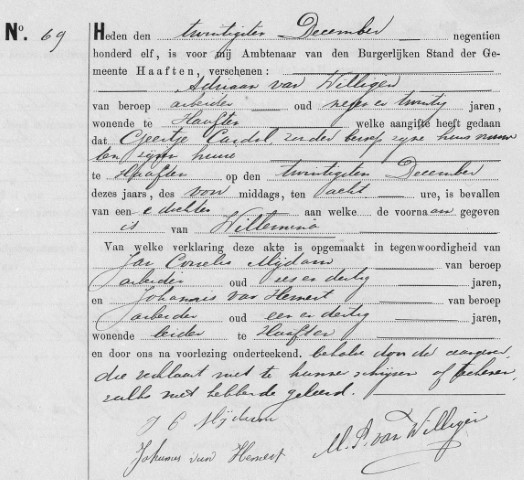 No. 69
Heden den twintigsten December negentien
honderd elf, is voor mij Ambtenaar van den Burgerlijken Stand der Ge-
meente Haaften, verschenen:
Adriaan van Willigen
van beroep arbeider oud negen en twintig jaren,
wonende te Haaften welke aangifte heeft gedaan
dat Geertje zonder beroep zijne huisvrouw
ten zijnen huize
te Haaften op den twintigsten December
dezes jaars, des voor middags, ten acht ure, is bevallen
van een e dochter aan welke de voornaam gegeven
is van Willemina
Van welke verklaring deze akte is opgemaakt in tegenwoordigheid van
Jan Cornelis Mijdam van beroep
arbeider oud een en dertig jaren,
en Johannis van Hemert van beroep
arbeider oud een en dertig jaren,
wonende beiden te Haaften
en door ons na voorlezing onderteekend. behalve door de aangever
die verklaart niet te kunnen schrijven of teekenen
zulks niet hebbende geleerd.
J C Mijdam
Johannis van Hemert
van Willigen